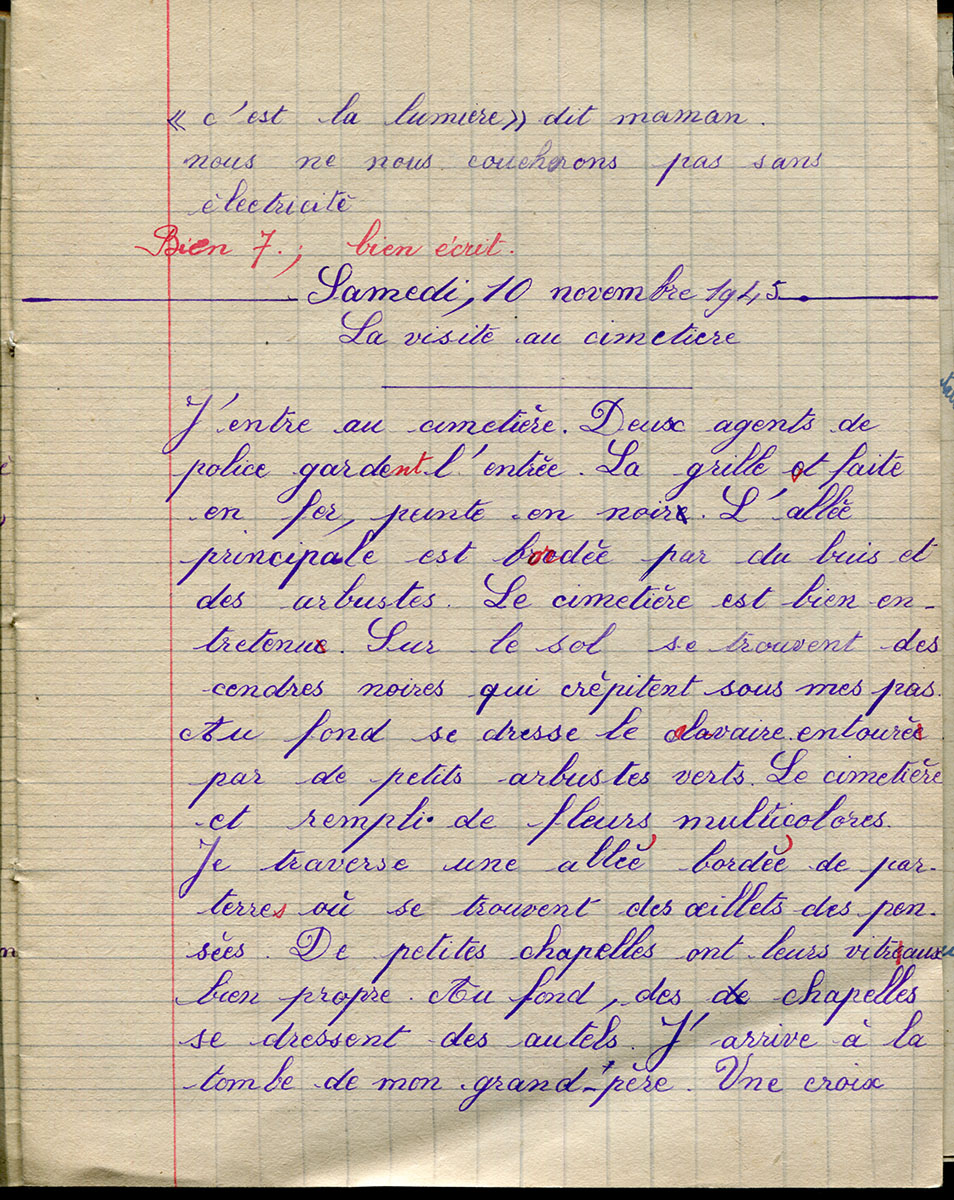 « c'est la lumière » dit maman.
nous ne nous coucherons pas sans
électricité
Bien 7.; bien écrit.
Samedi, 10 novembre 1945
La visite au cimetière
J'entre au cimetière. Deux agents de
police gardent l'entrée. La grille et faite
en fer, peinte en noir. L'allée
principale est bordée par du buis et
des arbustes. Le cimetière est bien en-
tretenu. Sur le sol se trouvent des
cendres noires qui crèpitent sous mes pas.
Au fond se dresse le calvaire entouré
par de petits arbustes verts. Le cimetière
et rempli de fleurs multicolores.
Je traverse une allée bordée de par-
terres où se trouvent des œillets des pen-
sées. De petites chapelles ont leurs vitraux
bien propre. Au fond, des chapelles
se dressent des autels. J'arrive à la
tombe de mon grand'-père. Une croix